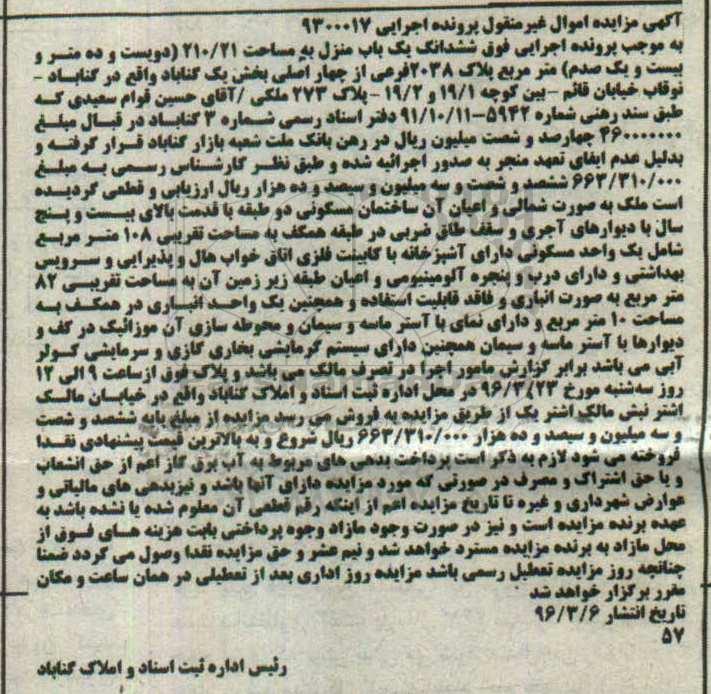 آگهی مزایده اموال غیرمنقول پرونده اجرایی ۹۳۰۰۰۱۷
به موجب پرونده اجرایی فوق ششدانگ یک باب منزل به مساحت ۲۱۰/۲۱ (دویست و ده متـر و
بیست و یک صدم) متر مربع پلاک ۲۰۳۸فرعی از چهار اصلی بخش یک گناباد واقع در گنابـاد -
نوقاب خیابان قائم - بین کوچه ۱۹/۱ و ۱۹/۲ - پلاک ۲۷۳ ملکی /آقای حسین قوام سعیدی کـه
طبق سند رهنی شماره ۵۹۴۲-۹۱/۱۰/۱۱ دفتر اسناد رسمی شـماره ۳ گنابـاد در قبـال مبلـغ
۴۶۰۰۰۰۰۰۰ چهارصد و شصت میلیون ریال در رهن بانک ملت شعبه بازار گناباد قـرار گرفتـه و
بدلیل عدم ایفای تعهد منجر به صدور اجرائیه شده و طبق نظـر کارشـناس رسـمی بـه مبلـغ
۶۶۳/۳۱۰/۰۰۰ ششصد و شصت و سه میلیون و سیصد و ده هزار ریال ارزیابی و قطعی گردیـده
است ملک به صورت شمالی و اعیان آن ساختمان مسکونی دو طبقه با قدمت بالای بیست و پنج
سال با دیوارهای آجری و سقف طاق ضربی در طبقه همکف به مساحت تقریبی ۱۰۸ متـر مربـع
شامل یک واحد مسکونی دارای آشپزخانه با کابینت فلزی اتاق خواب هال و پذیرایی و سـرویس
بهداشتی و دارای درب و پنجره آلومینیومی و اعیان طبقه زیر زمین آن به مساحت تقریبـی ۸۲
متر مربع به صورت انباری و فاقد قابلیت استفاده و همچنین یک واحـد انبـاری در همکـف بـه
مساحت ۱۰ متر مربع و دارای نمای با آستر ماسه و سیمان و محوطه سازی آن موزائیک در کف و
دیوارها با آستر ماسه و سیمان همچنین دارای سیستم گرمایشی بخاری گازی و سرمایشی کـولر
آبی می باشد برابر گزارش مامور اجرا در تصرف مالک می باشد و پلاک فوق ازساعت ۹ الی ۱۲
روز سه‌شنبه مورخ ۹۶/۳/۲۳ در محل اداره ثبت اسناد و املاک گناباد واقع در خیابـان مالـک
اشتر نبش مالک اشتر یک از طریق مزایده به فروش می رسد مزایده از مبلغ پایه ششصد و شصت
و سه میلیون و سیصد و ده هزار ۶۶۳/۳۱۰/۰۰۰ ریال شروع و به بالاترین قیمت پیشنهادی نقـدا
فروخته می شود لازم به ذکر است پرداخت بدهی های مربوط به آب برق گاز اعم از حق انشعاب
و یا حق اشتراک و مصرف در صورتی که مورد مزایده دارای آنها باشد و نیزبدهی های مالیاتی و
عوارض شهرداری و غیره تا تاریخ مزایده اعم از اینکه رقم قطعی آن معلوم شده یا نشده باشد به
عهده برنده مزایده است و نیز در صورت وجود مازاد وجوه پرداختی بابت هزینه هـای فـوق از
محل مازاد به برنده مزایده مسترد خواهد شد و نیم عشر و حق مزایده نقدا وصول می گردد ضمنا
چنانچه روز مزایده تعطیل رسمی باشد مزایده روز اداری بعد از تعطیلی در همان ساعت و مکان
مقرر برگزار خواهد شد
تاریخ انتشار ۹۶/۳/۶
۵۷
رئیس اداره ثبت اسناد و املاک گناباد